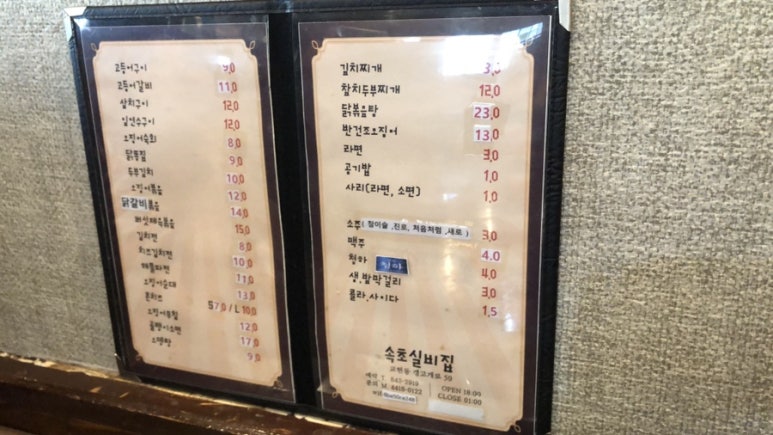 고등어구이 9,0
고등어갈비 11,0
삼치구이 12,0
임연수구이 12,0
오징어숙회 8,0
닭똥집 9,0
두부김치 10,0
오징어볶음 12,0
닭갈비볶음 14,0
버섯제육볶음 15,0
김치전 8,0
치즈김치전 10,0
해물파전 11,0
오징어순대 13,0
콘치즈 S7,0 / L10,0
오징어튀김 12,0
골뱅이소면 17,0
오뎅탕 9,0
김치찌개
참치두부찌개 12,0
닭볶음탕 23,0
반건조오징어 13,0
라면 3,0
공기밥 1,0
사리(라면, 소면) 1,0
소주( 참이슬 ,진로, 처음처럼 ,새로 ) 3,0
맥주 4.0
청하 4,0
생,밤막걸리 3,0
콜라,사이다 1,5
속초실비집
교현동 갱고개로 59
예약 T. 643-5919
문의 M. 8418-6122
OPEN 16:00
CLOSE 01:00